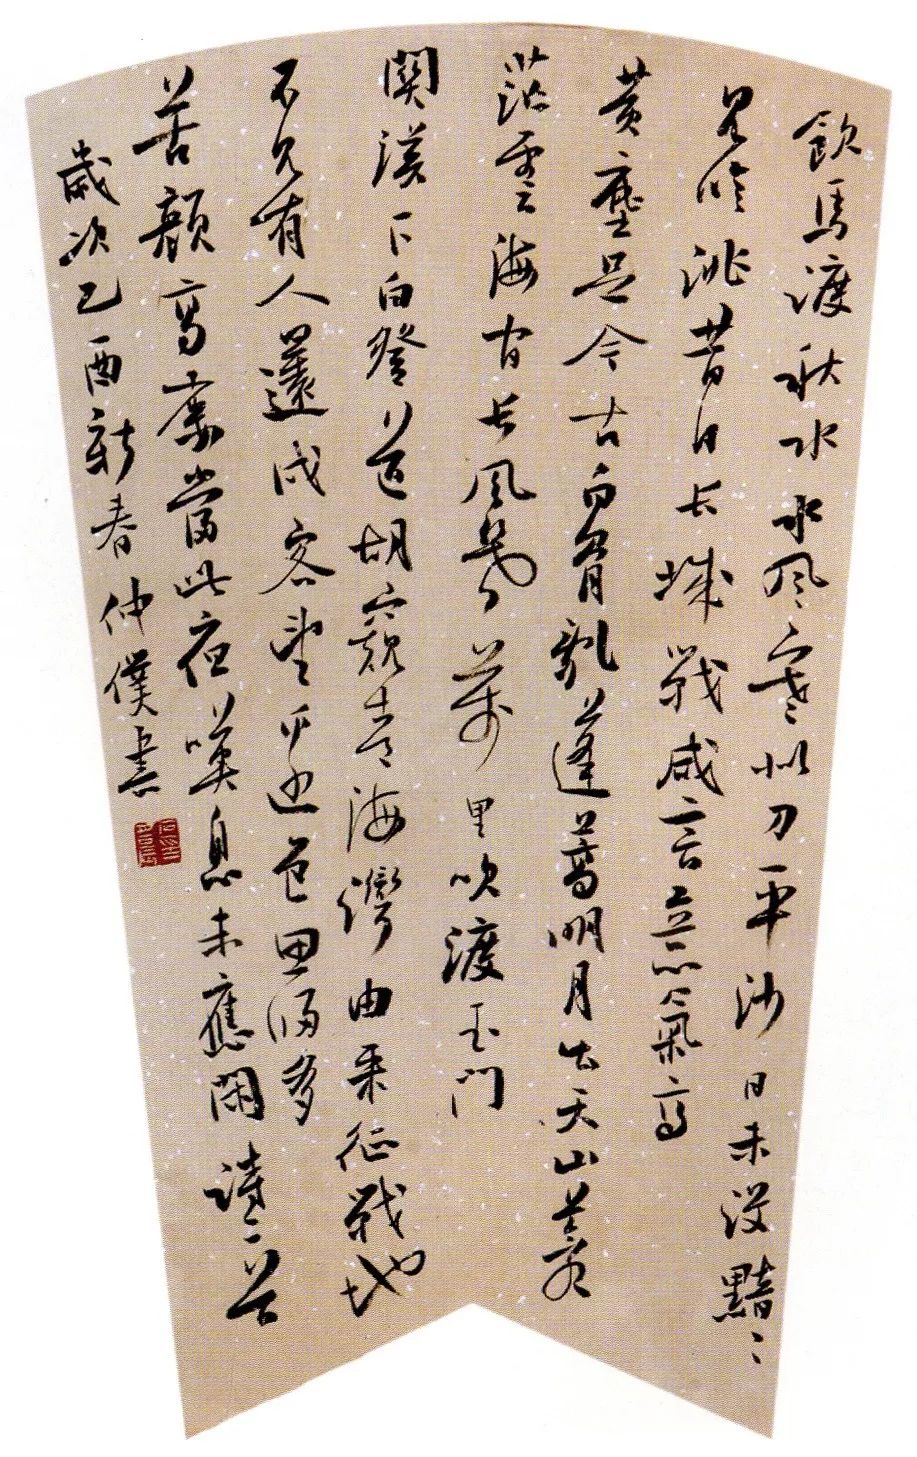 飲馬渡秋水水風寒似刀平沙日未没黯〻
見临洮昔日長城戰咸言意氣高
黃塵足今古白骨亂蓬蒿明月出天山蒼
茫雲海間長風幾萬里吹渡玉门
關漢下白登道胡窺青海灣由來征戰地
不見有人還戍客望乎邊色思歸多
苦顏高樓當此夜嘆息未應閑詩二首
歲次乙酉新春仲僕書